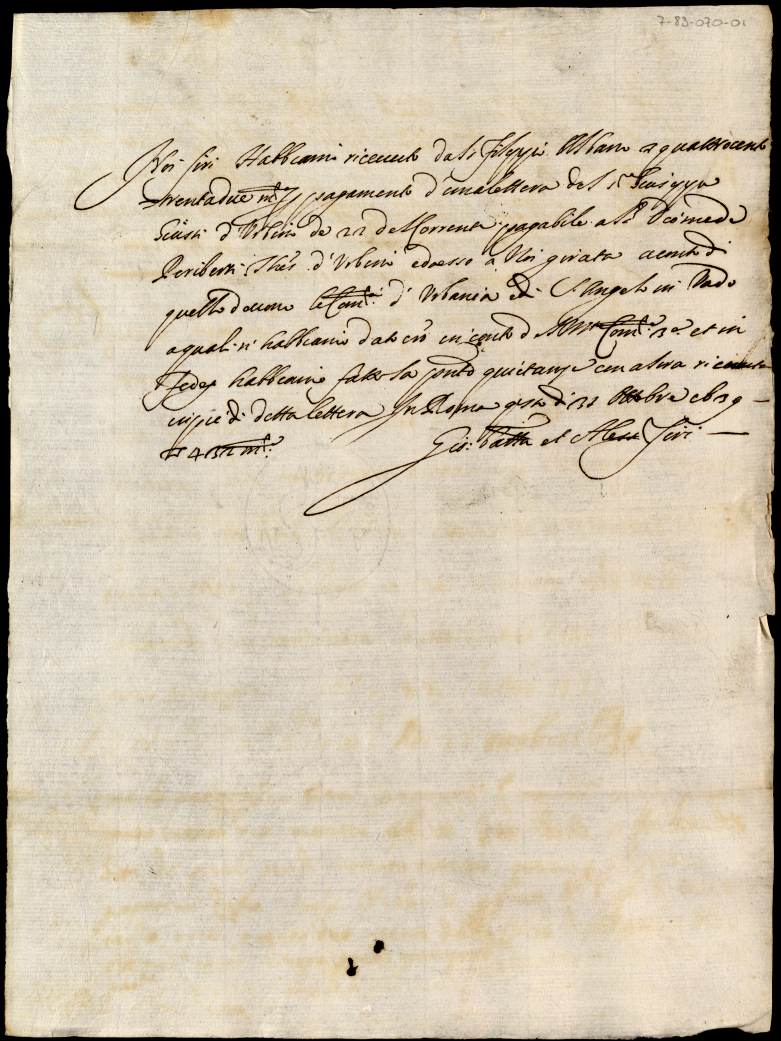 7-83-070-01
Noi Siri Habbiamo riceuuto da Sr Filippo Albani quattrocento
trentadue mta p pagamento d'una lettera del Sr Giuseppe
Giusti d'Urbino de 22 del Corrente pagabile a Sr
d'Urbino ed esso à Noi girata a conto di
quello deuono le Comtà d' Urbania e di S. Angelo in Vado
a quali n' habbiamo dato cto in conto d et in
fede habbiamo fatto la pnte quietanza con altra
in pie di detta lettera In Roma qsto di 31 Ottobre
432 mta
Gio: Batta et Aless Siri